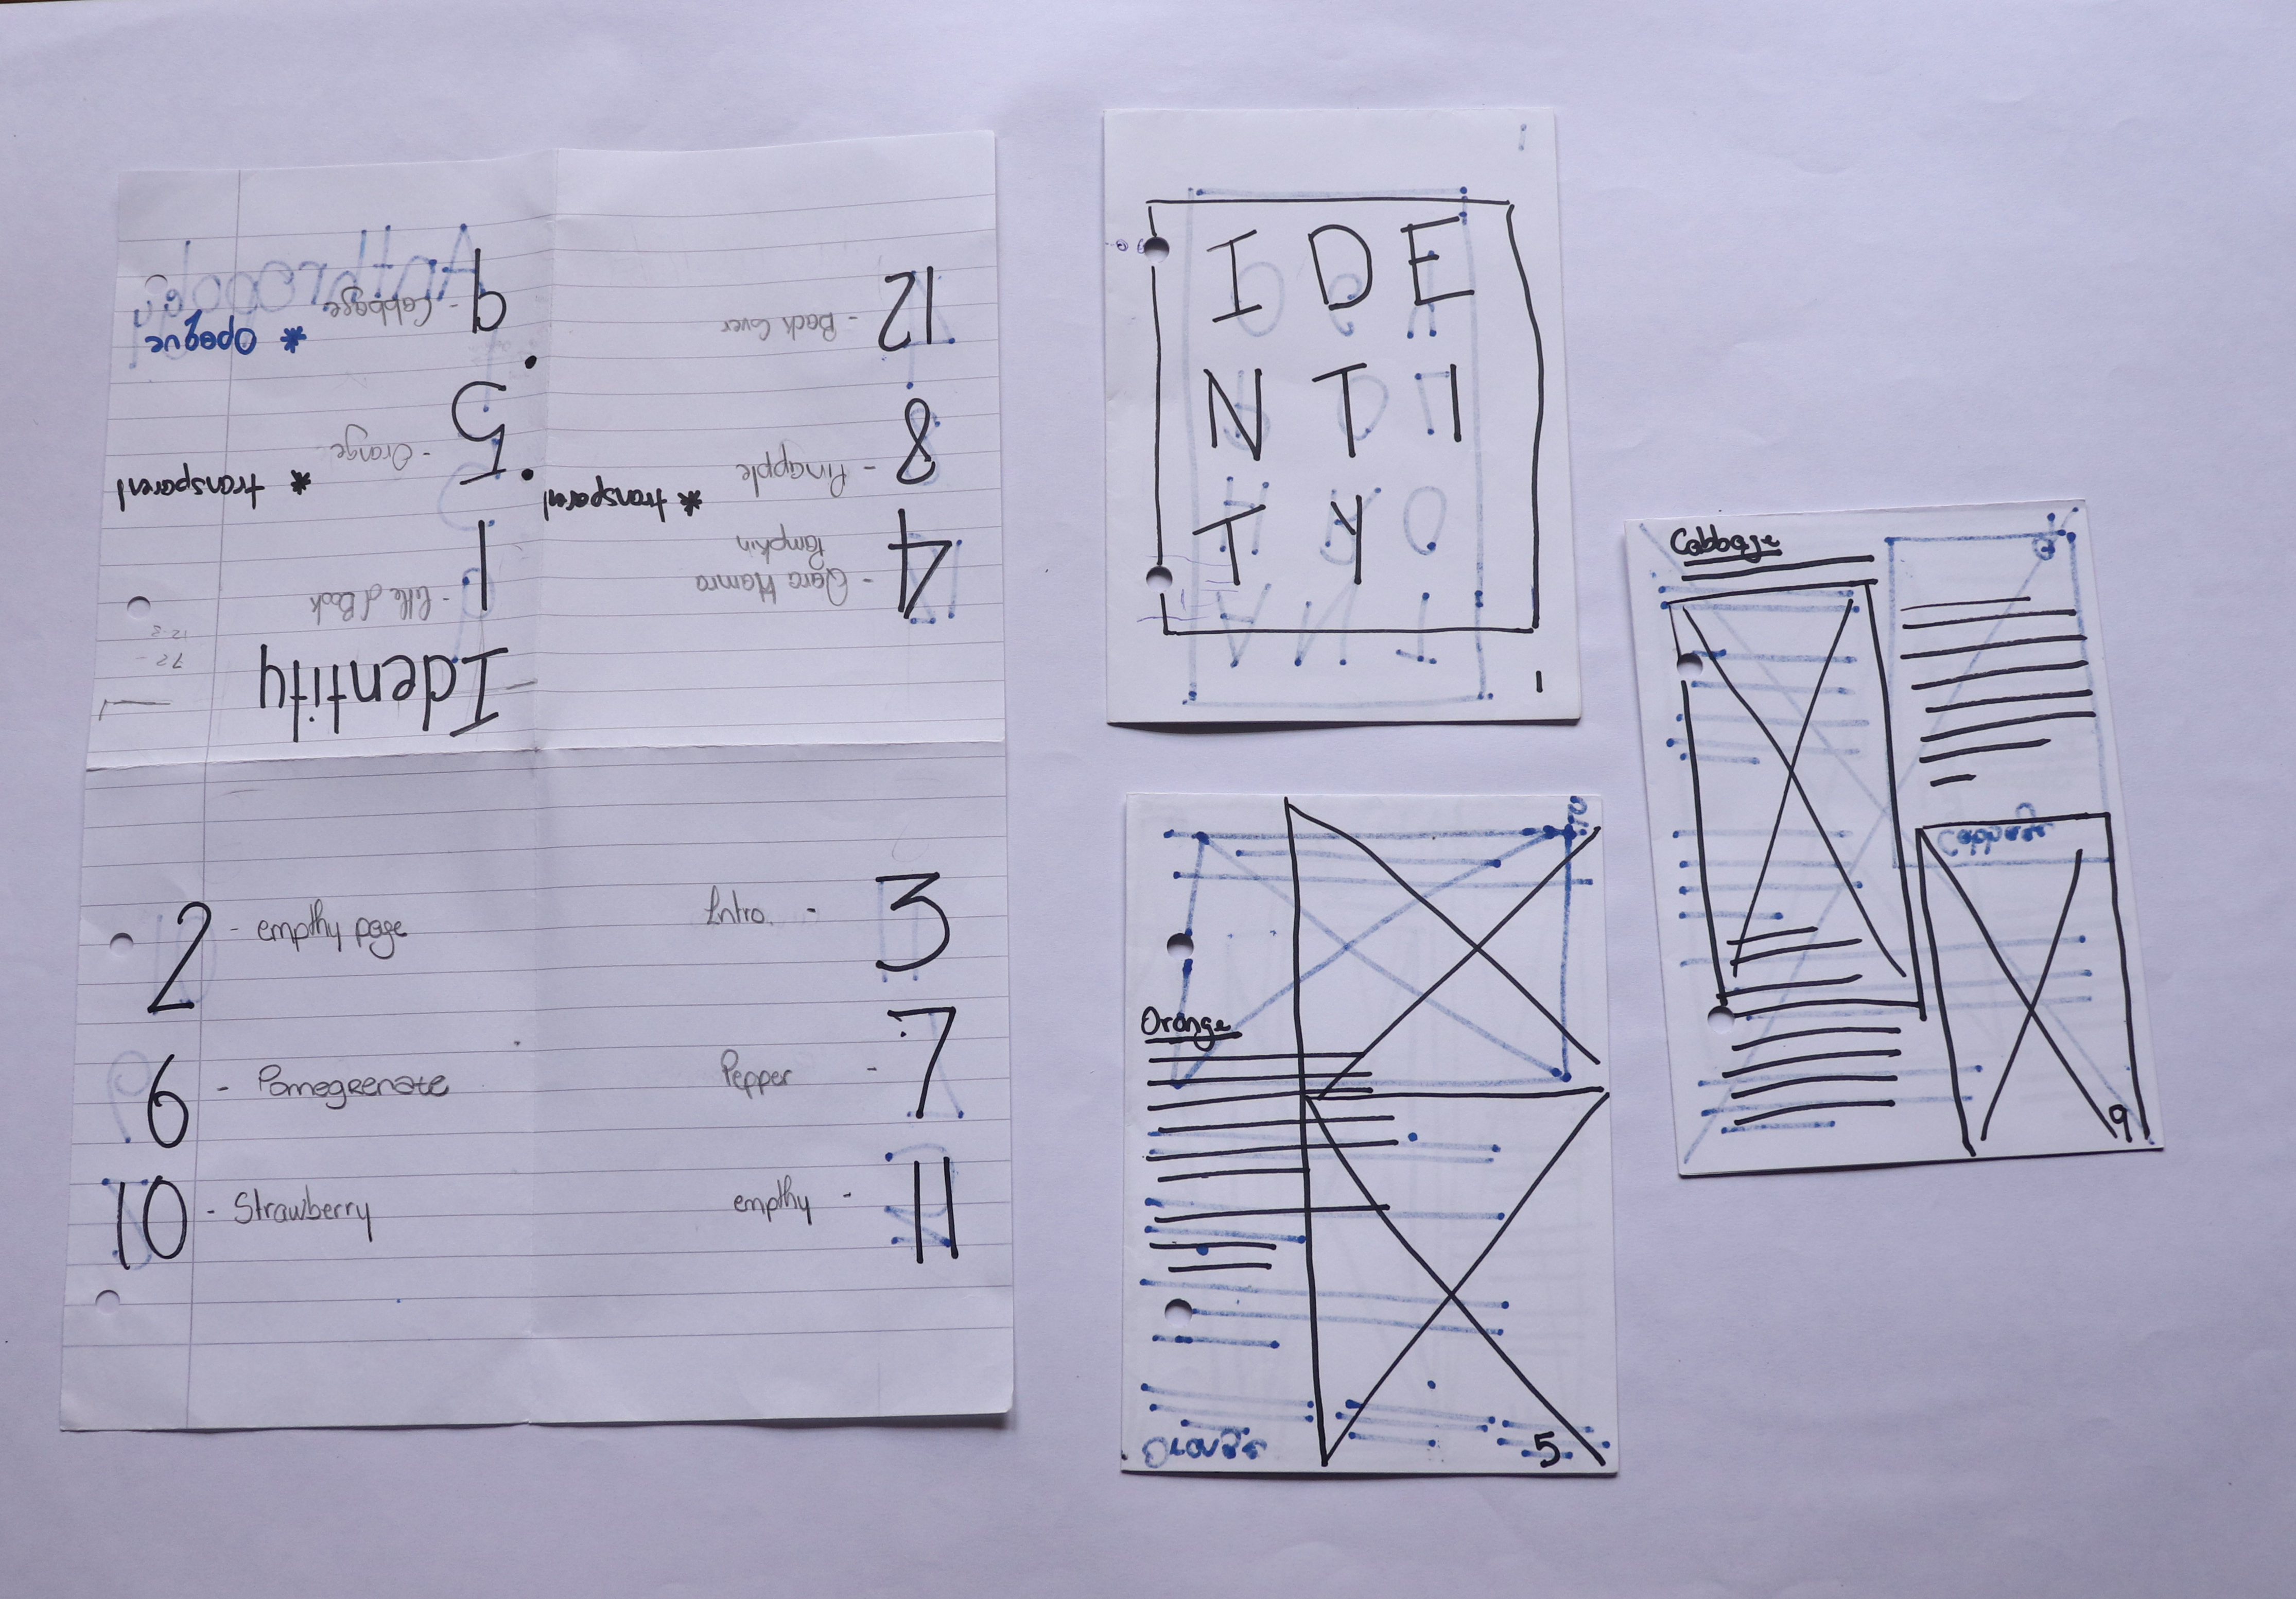 Identity
1 - title of Book
4 - Qara Hamra
Pumpkin
5 - Orange * transparent
8 - Pinapple * transparent
9 - Cabbage * opaque
12 - Back Cover
2 - empthy page
Intro. - 3
6 - Pomegrenate
Pepper - 7
10 - Strawberry
empthy - 11
I D E
N T I
T Y
1
Orange
5
Cabbage
9